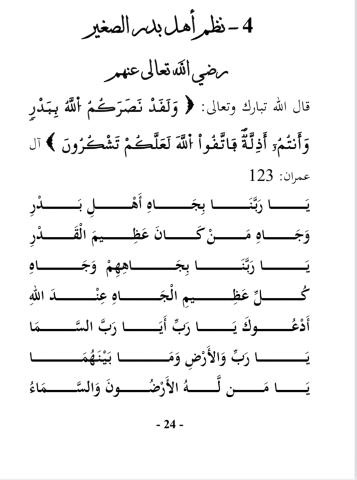 4 – نظم أهل بدر الصغير
رضي الله تعالى عنهم
قال الله تبارك وتعالى: ﴿ وَلَقَدْ نَصَرَكُمُ اللَّهُ بِبَدْرٍ
وَأَنتُمُۥٓ أَذِلَّةٌ فَاتَّقُوا۟ اللَّهَ لَعَلَّكُمْ تَشْكُرُونَ ﴾ آل
عمران: 123
يَـــا رَبَّنَـــا بِجَـــاهِ أَهْـــلِ بَـــدْرِ
وَجَـــاهِ مَـــنْ كَـــانَ عَظِـــيمَ الْقَـــدْرِ
يَـــا رَبَّنَـــا بِجَـــاهِهِمْ وَجَـــاهِ
كُـــلِّ عَظِـــيمِ الْجَـــاهِ عِنْـــدَ اللهِ
أَدْعُـــوكَ يَـــا رَبِّ أَيَـــا رَبَّ السَّـــمَا
يَـــا رَبِّ وَالأَرْضِ وَمَـــا بَيْنَهُمَـــا
يَـــا مَـــن لَّـــهُ الأَرْضُـــونَ وَالسَّـــمَاءُ
- 24 -